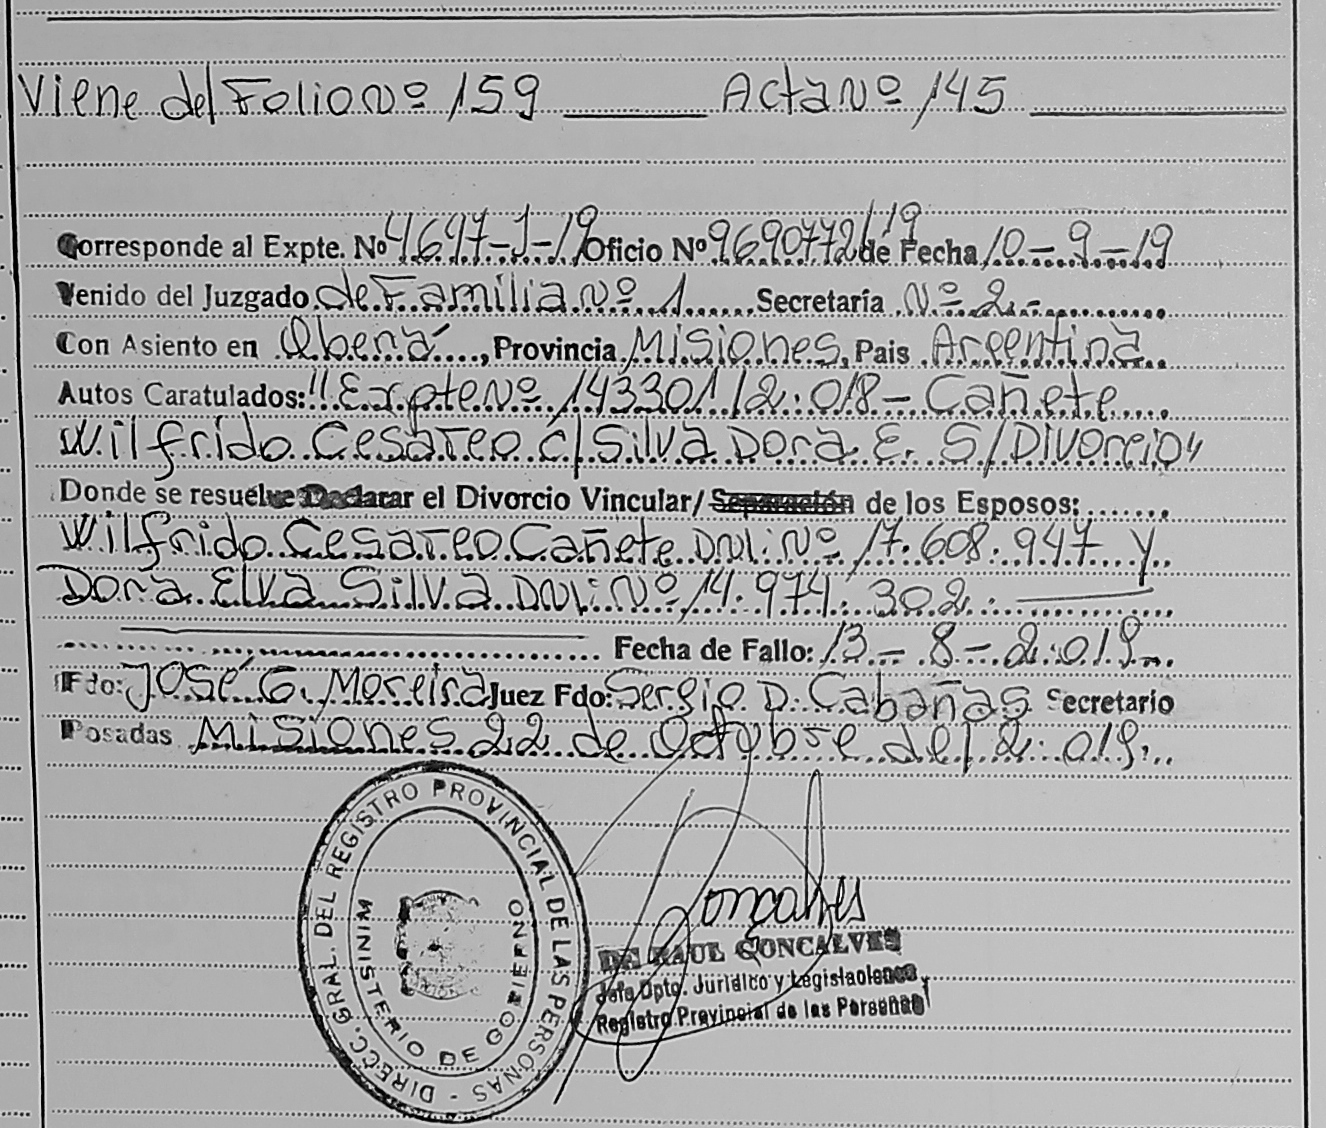 Viene del Folio Nº 159 ______ Acta Nº 145 ______
Corresponde al Expte. Nº 4697-J-19 Oficio Nº 9690772/19 de Fecha 10-9-19
Venido del Juzgado de Familia Nº 1 Secretaría Nº 2.-
Con Asiento en Oberá, Provincia Misiones, Pais Argentina
Autos Caratulados: "Expte Nº 143301/2.018 - Cañete
Wilfrido Cesareo c/ Silva Dora E. S/Divorcio"
Donde se resuelve Declarar el Divorcio Vincular/Separación de los Esposos:
Wilfrido Cesareo Cañete DNI: Nº 17.608.947 y
Dora Elva Silva DNI: Nº 14.974.302.
Fecha de Fallo: 13-8-2.019
Fdo: José G. Moreira Juez Fdo: Sergio D. Cabañas Secretario
Posadas Misiones 22 de Octubre del 2.019.
DIRECC. GRAL. DEL REGISTRO PROVINCIAL DE LAS PERSONAS -
MINISTERIO DE GOBIERNO
Goncalves
RAUL GONCALVES
Jefe Dpto. Jurídico y
Registro Provincial de las Personas